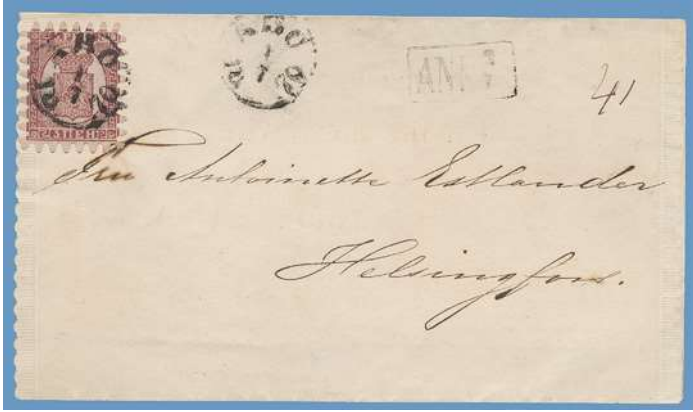 ÅBO
1
7
ANK
41
Fru Antoinette Estlander
Helsingfors.